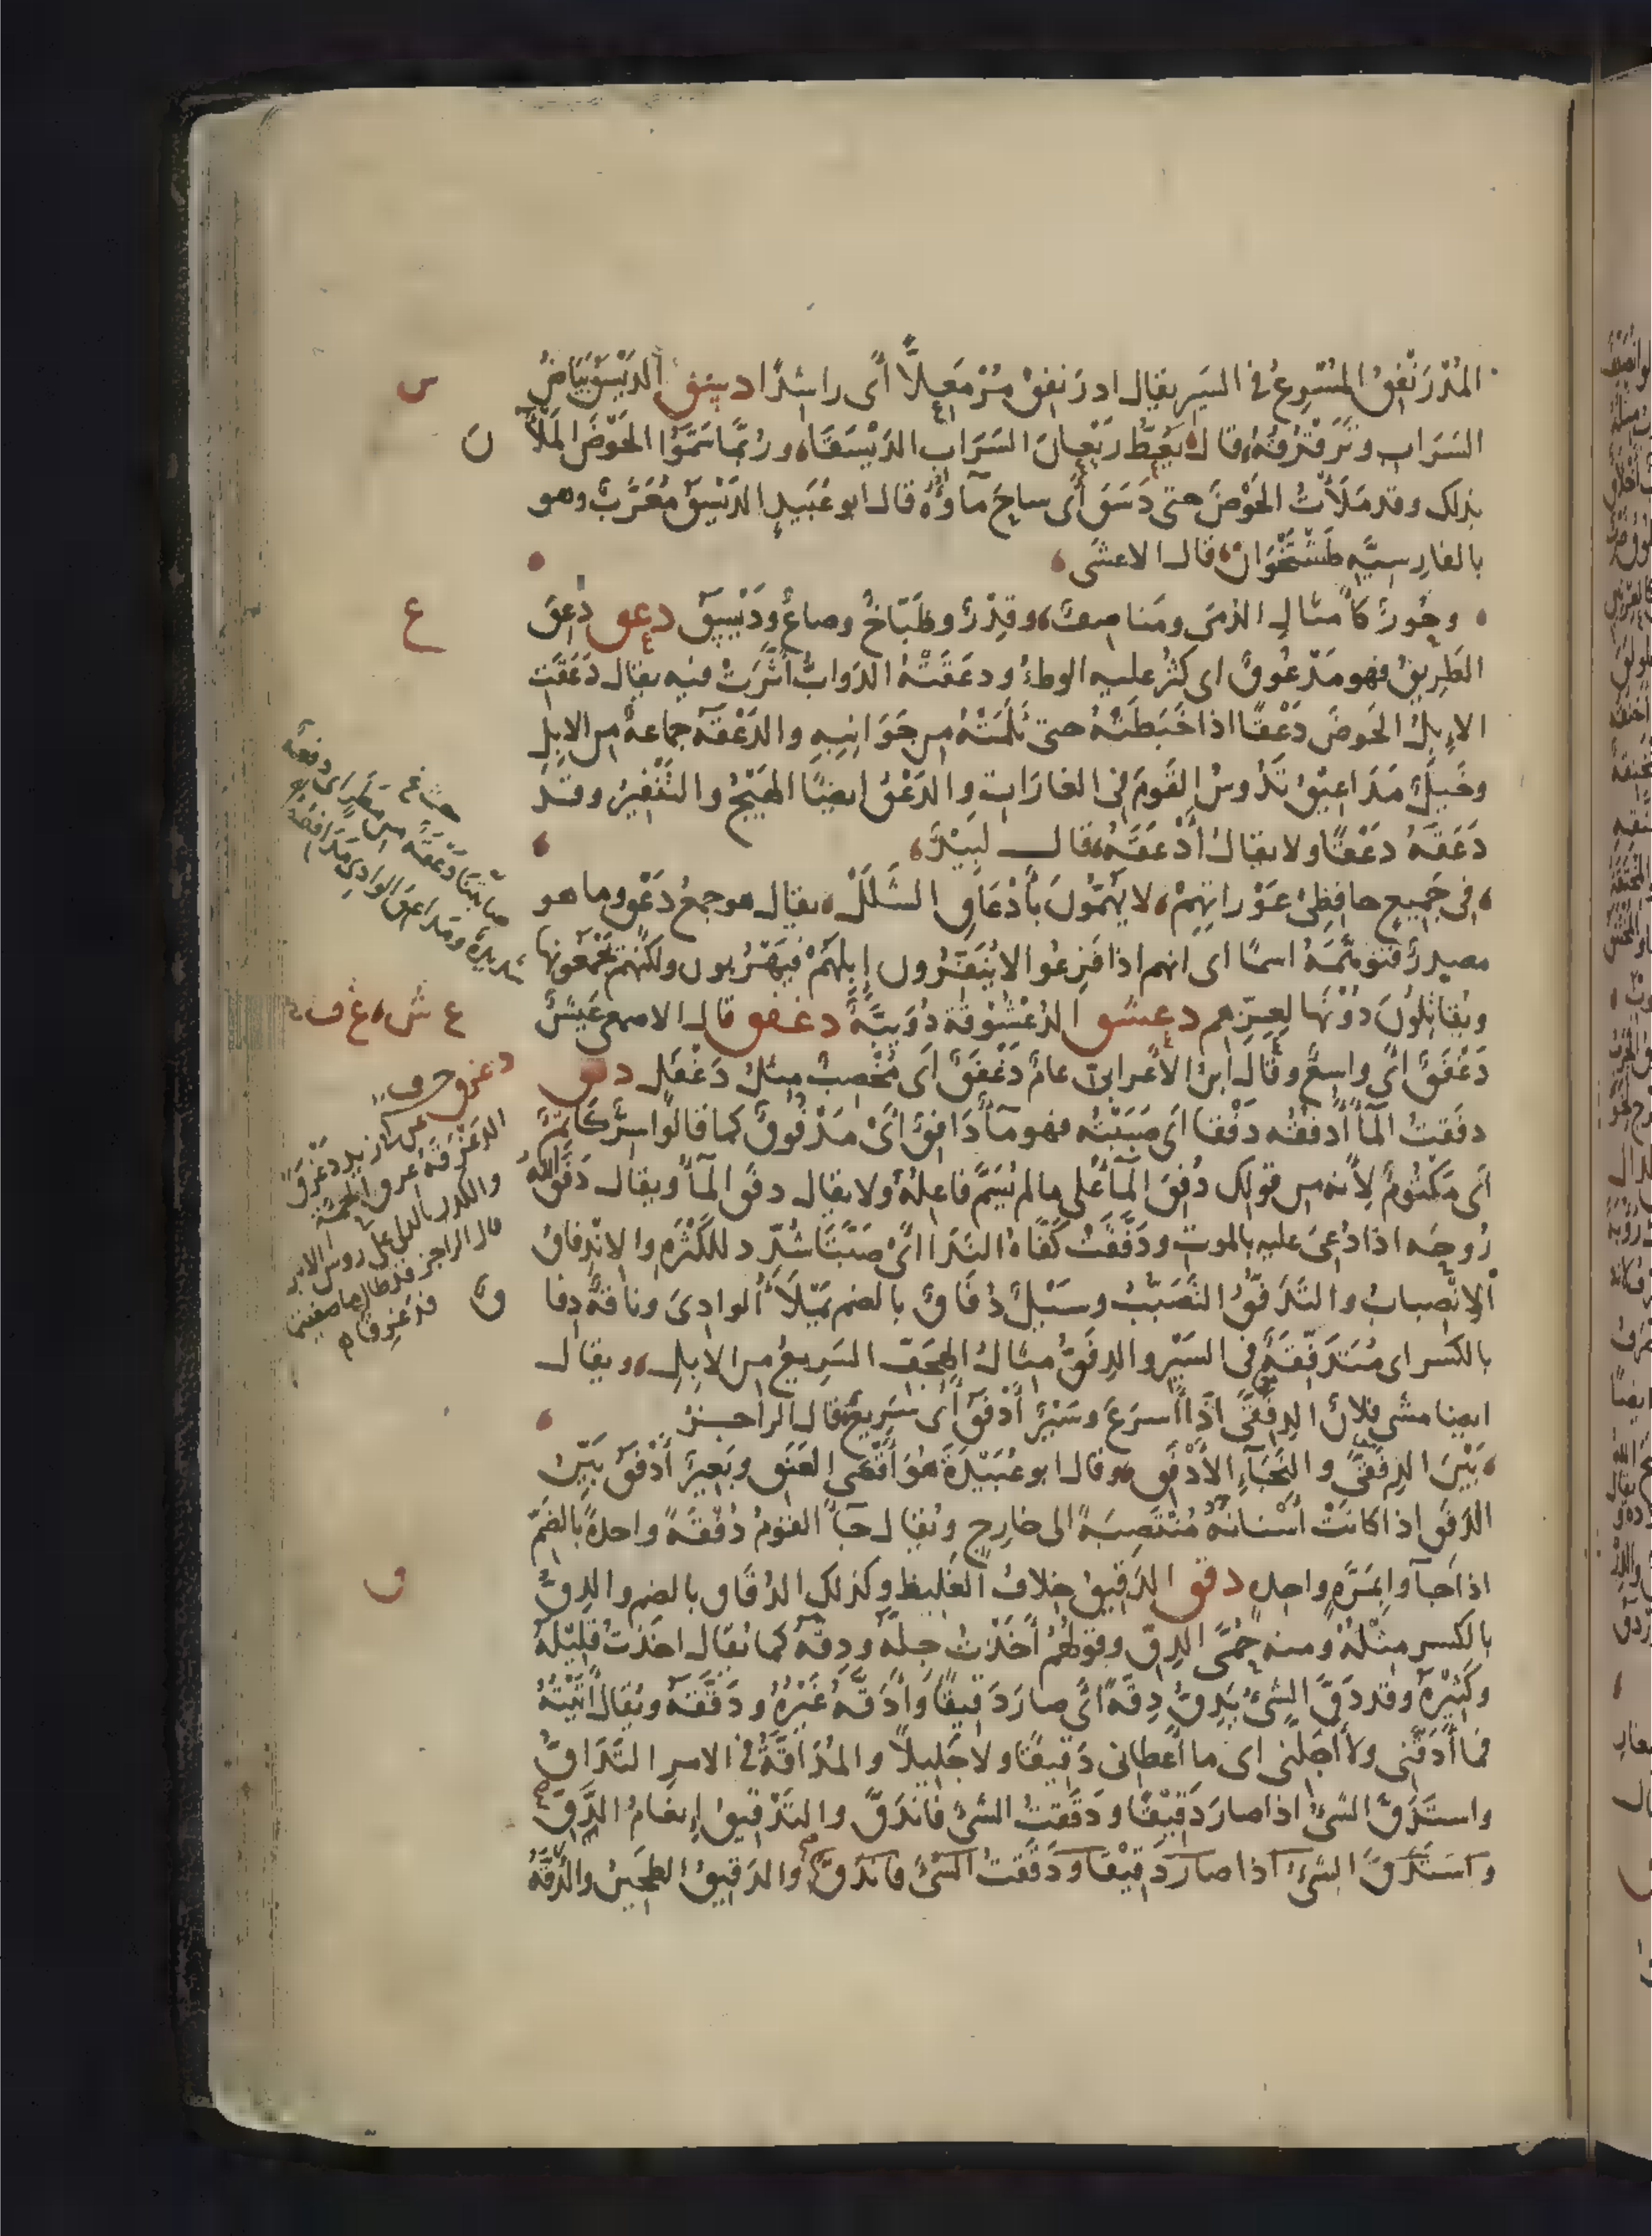 المُدْرَنْفِقُ المُسْرِعُ في السَيرِ يقال ادرَنفِقْ مُرْمَعِلًّا أَى راشِدًا ديسق الدَيْسَقُ بَيَاضُ
السَرَاب وتَرَقْرُقُهُ، قال، يَعُطُّ رَيْعانَ السَرَابِ الدَيْسَقَا، ورُبَّما سَمَّوُا الحَوْضَ المَلْآنَ
بذلك وقد مَلَأْتُ الحَوْضَ حتى دَسَقَ أَى ساحَ مآؤُهُ قال ابو عُبَيدٍ الدَيْسَقُ مُعَرَّبٌ وهو
بالفارسيَّه طَشْتَخْوَان، قال الاعشَى،
وحُورٌ كأَمثالِ الدُمَى ومَناصِفٌ، وقِدْرٌ وطَبَّاخٌ وصاعٌ ودَيْسَقٌ دعق دُعِقَ
الطَرِيقُ فهو مَدْعُوقٌ اى كَثُرَ عليه الوطءُ ودعَقَتْهُ الدَوابُّ أَثَّرَتْ فيه يقال دَعَقَتِ
الإبلُ الحَوضَ دَعْقًا اذا خَبَطَتْهُ حتى ثَلَمَتْهُ من جَوَانِبِهِ والدَعْقَةُ جماعةٌ من الابِلِ
وخَيلٌ مَدَاعِيقُ تَدُوسُ القَومَ فى الغارَاتِ والدَعْقُ ايضًا الهَيْجُ والتَنْفِيرُ وقد
دَعَقَهُ دَعْقًا ولا يقال أَدْعَقَهُ، قال لَبِيْدٌ،
،فى جَمِيعٍ حافِظِى عَوْراتِهِمْ، لا يَهُمُّونَ بأَدْعَاقِ الشَلَلْ، يقال هو جمعُ دَعْقٍ وما هو
مصدرٌ فتوهَّمَهُ اسمًا اى انهم اذا فَزِعُوا لا يُنَفِّرُون إبِلَهُمْ فيَهْرُبون ولكنهم يَجْمَعُونَها
ويُقاتِلُونَ دُوْنَها لِعِزِّهم دعشق الدُعْشُوقَةُ دُوَيْبَّةٌ دغفق قال الاصمعى عَيشٌ
دَغْفَقٌ اى واسعٌ وقال ابنُ الاعرابىّ عامٌ دَغْفَقٌ أى مُخْصِبٌ مِثلُ دَغْفَل دفق
دفَقتُ المآءَ أَدفُقُه دَفْقا أى صَبَبْتُه فهو مآءٌ دَافِقٌ أَىْ مَدْفُوقٌ كما قالوا سِرٌّ كَاتِمٌ
أَى مَكْتُومٌ لأنه من قولك دُفِقَ المآءُ على ما لم يُسَمَّ فاعِلُهُ ولا يقال دفَق المآءُ ويقال دَفَقَ اللهُ
رُوحَه اذا دُعِىَ عليه بالموتِ ودَفَّقَتْ كَفَّاهُ النَدَا أَىْ صَبَّتَا شُدِّد للكَثْرَةِ والانْدِفاقُ
الانْصِبابُ والتَدَفُّقُ التَصَبُّبُ وسَيْلٌ دُفَاقٌ بالضم يَمْلَأُ الوادِىَ وناقةٌ دِفاق
بالكَسر اى مُتَدَفِّقَةٌ فى السَيْر والدِفَقُّ مِثالُ الهِجَفِّ السَرِيعُ من الإبِلِ، ويقال
ايضا مشى فلانٌ الدِفِقَّى اذا أسرَعَ وسَيْرٌ أَدْفَقُ أَى سَرِيعٌ، قال الراجزُ
،بَيْنَ الدِفِقَّى والنَجَآءِ الأَدْفَقِ، وقال ابو عُبَيْدَةَ هو أَقْصَى العَنَقِ وبَعِيرٌ أَدْفَقُ بَيِّنُ
الدَفَقِ اذا كانَتْ أَسْنانُهُ مُنْتَصِبَةً الى خارِج ويُقال جآء القَوْمُ دُفْقَةً واحدةً بالضمّ
اذا جآوا بِمَرَّةٍ واحده دقق الدَقِيقُ خِلافُ الغَلِيظِ وكذلك الدُقَاق بالضم والدِقُّ
بالكَسر مِثْلُهُ ومنه حُمَّى الدِقِّ وقولُهُم أَخَذْتُ جِلَّهُ ودِقَّهُ كما يُقال اخذتُ قَلِيْلَهُ
وكَثِيْرَهُ وقد دَقَّ الشىءُ يَدِقُّ دِقَّةً أَى صار دَقيقًا وأَدَقَّهُ غَيْرُهُ ودَقَّقَهُ ويُقال أَتَيْتُهُ
فما أَدَقَّنِى ولا أَجَلَّنِى اى ما أعطانى دَقِيقًا ولا جَلِيلًا والمُدَاقَّةُ فى الامرِ التَدَاقُّ
واستَدَقَّ الشىءُ اذا صارَ دَقِيْقًا ودَقَقتُ الشىءَ فانْدَقَّ والتَدْقِيقُ إنعامُ الدَّقِّ
واستَدَقَّ الشىءُ اذا صارَ دَقِيْقًا ودَقَقتُ الشىءَ فاندَقَّ والدَقيقُ الطَحِينُ والدُقَّةُ
س
ن
ع
ع ش، غ ف
ق
ق
أصابَتْنَا دَعْقَةٌ من مَطَرٍ اى دفعة
شديدة ومَدَاعِقُ الوادى مَدَافِعُهُ
دغرق
قال الراجز